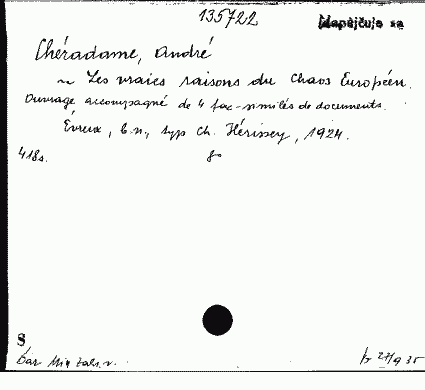 135722
Chéradame, André
~ Les vraies raisons du Chaos Européen.
Ouvrage accompagné de 4 fac-similés de documents.
Évreux, b.n., typ Ch. Hérissey, 1924.
418s. 8°
S
Dar Min zahr. v. 27/9 35